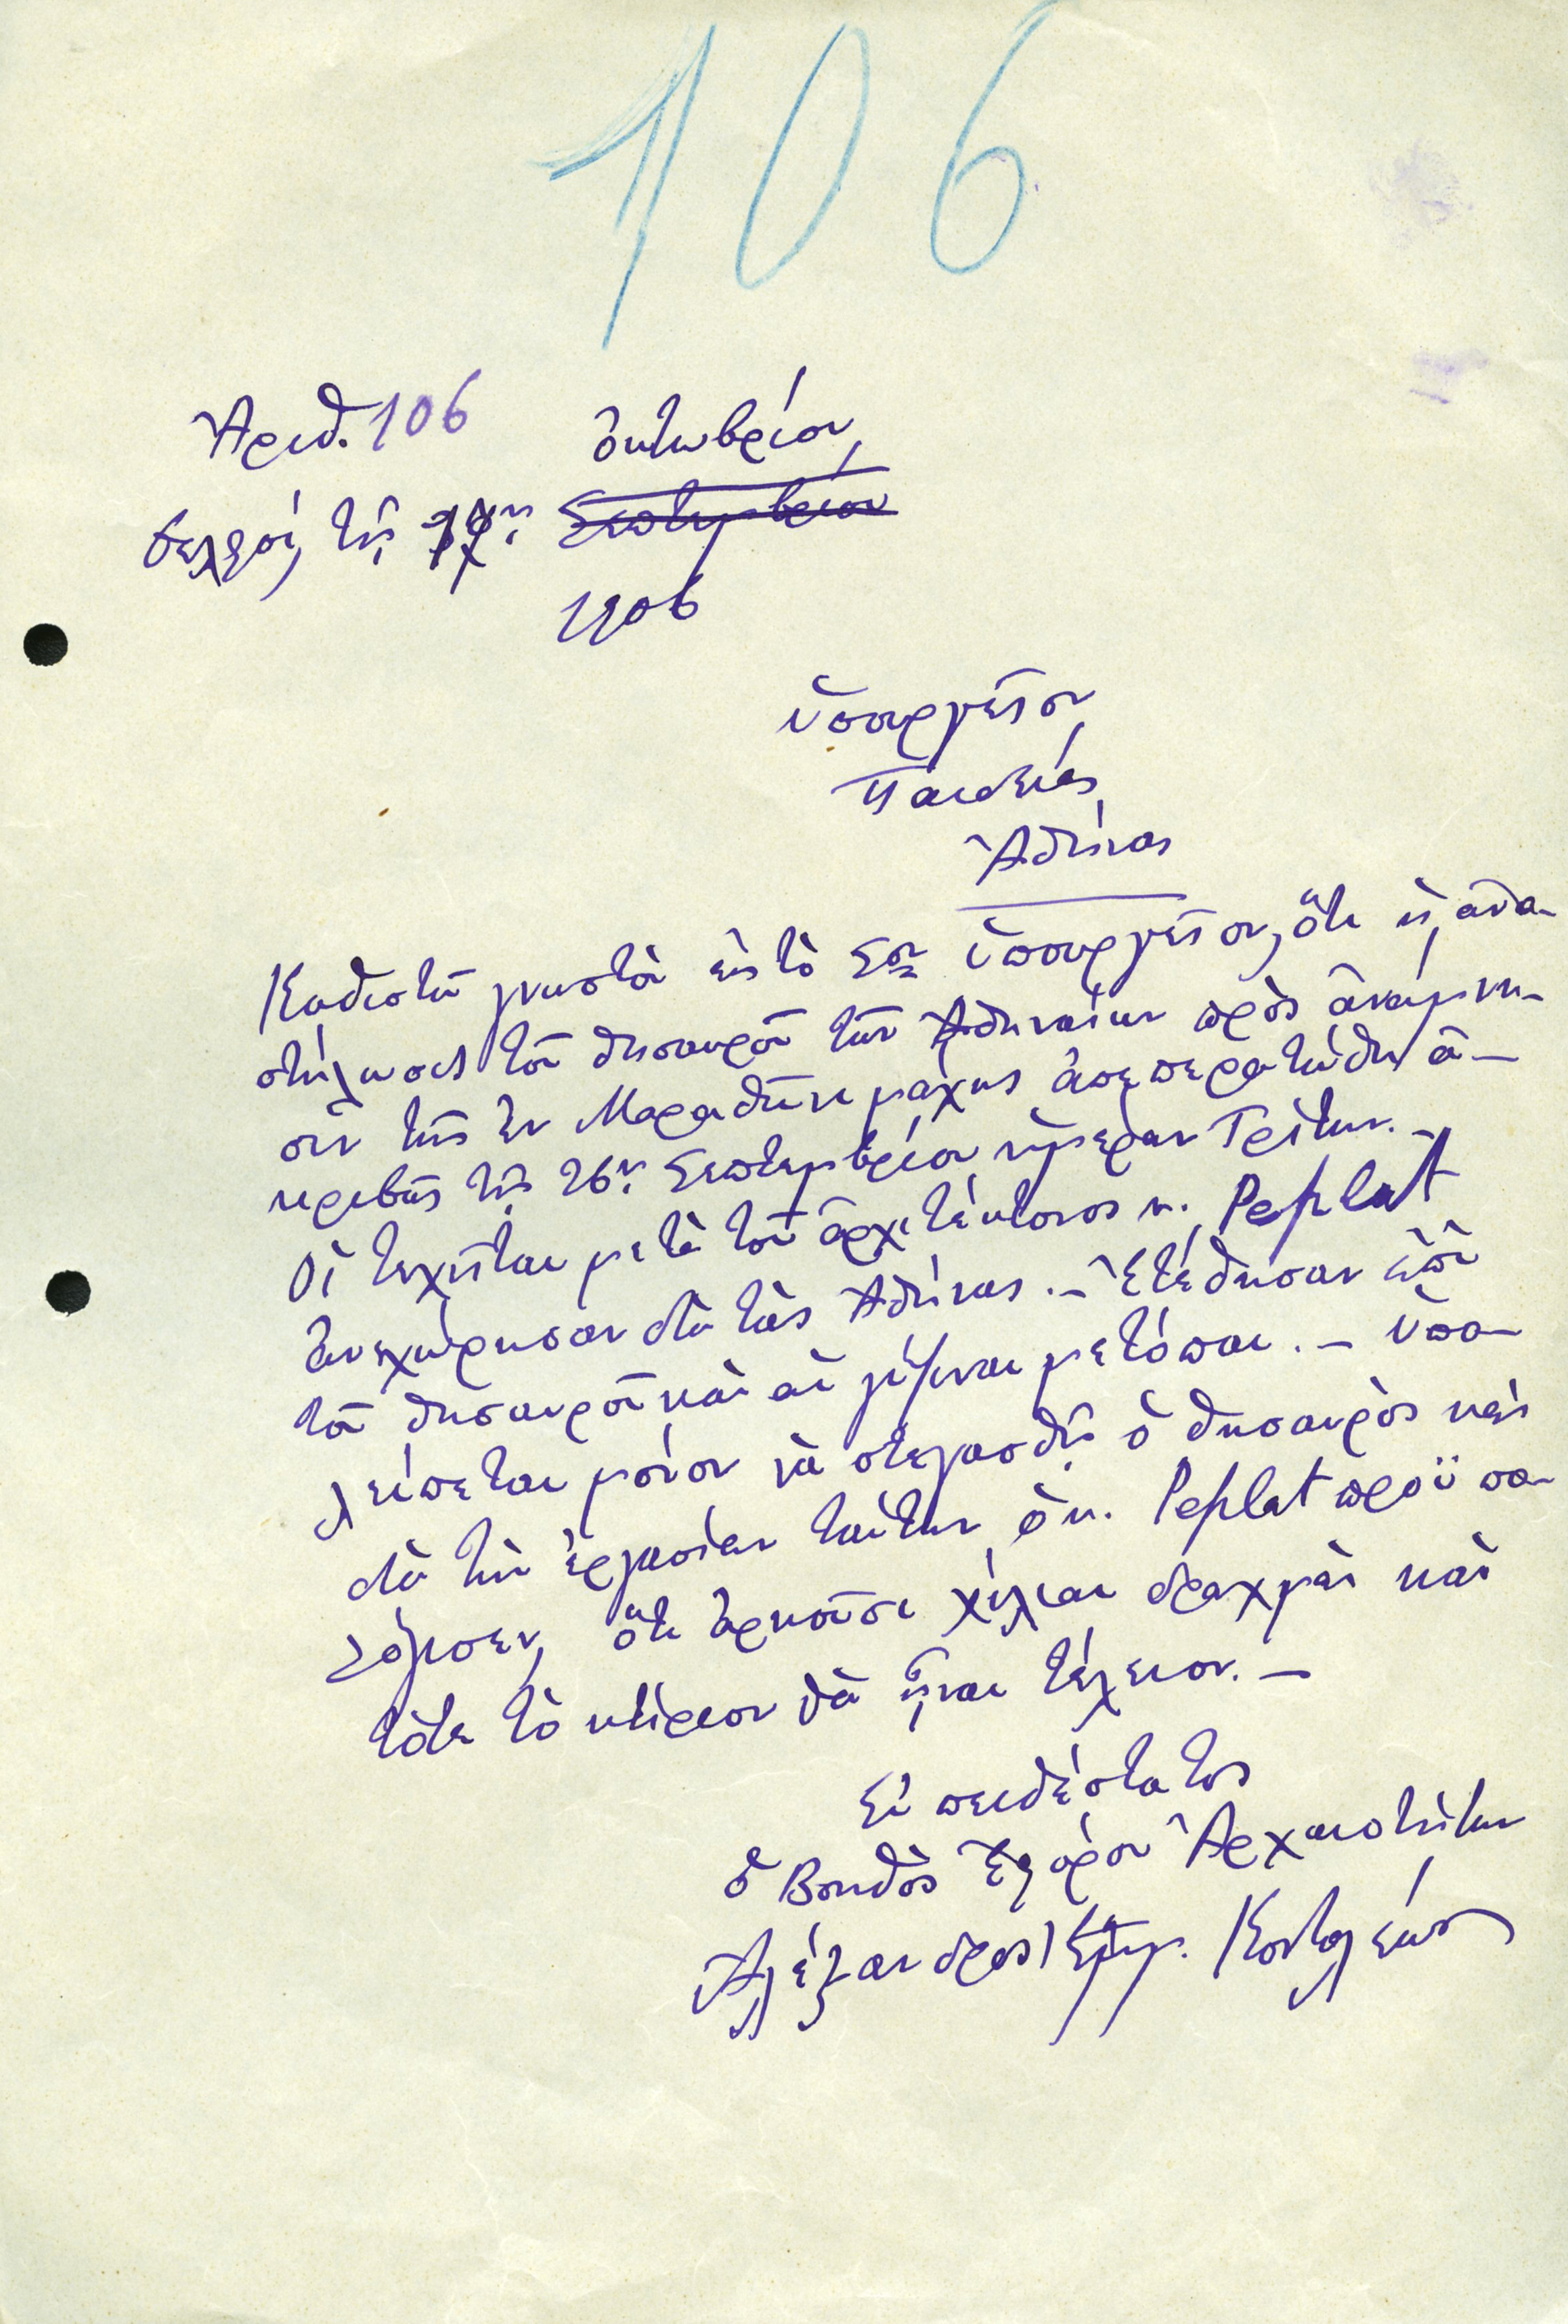 106
Ἀριθ. 106
Ὀκτωβρίου
Δελφοί, τῇ Σεπτεμβρίου
1906
Ὑπουργεῖον
Παιδείας
Ἀθήνας
Καθιστῶ γνωστὸν εἰς τὸ Σον Ὑπουργεῖον, ὅτι ἡ ἀνα-
στήλωσις τοῦ θησαυροῦ τῶν Ἀθηναίων πρὸς ἀνάμνη-
σιν τῆς ἐν Μαραθῶνι μάχης ἀπεπερατώθη ἀ-
κριβῶς τῇ 26ῃ Σεπτεμβρίου ἡμέραν Τρίτην.-
Οἱ τεχνῖται μετὰ τοῦ ἀρχιτέκτονος κ. Replat
ἀνεχώρησαν διὰ τὰς Ἀθήνας.- Ἐτέθησαν ἐπὶ
τοῦ θησαυροῦ καὶ αἱ γύψιναι μετόπαι.- Ὑπο-
λείπεται μόνον νὰ στεγασθῇ ὁ θησαυρὸς καὶ
διὰ τὴν ἐργασίαν ταύτην ὁ κ. Replat προϋπο-
λόγισεν, ὅτι ἀρκοῦσι χίλιαι δραχμαὶ καὶ
τότε τὸ κτίριον θὰ ἦναι τέλειον.-
Εὐπειθέστατος
ὁ Βοηθὸς Ἐφόρου Ἀρχαιοτήτων
Ἀλέξανδρος Ἐμμ. Κοντολέων